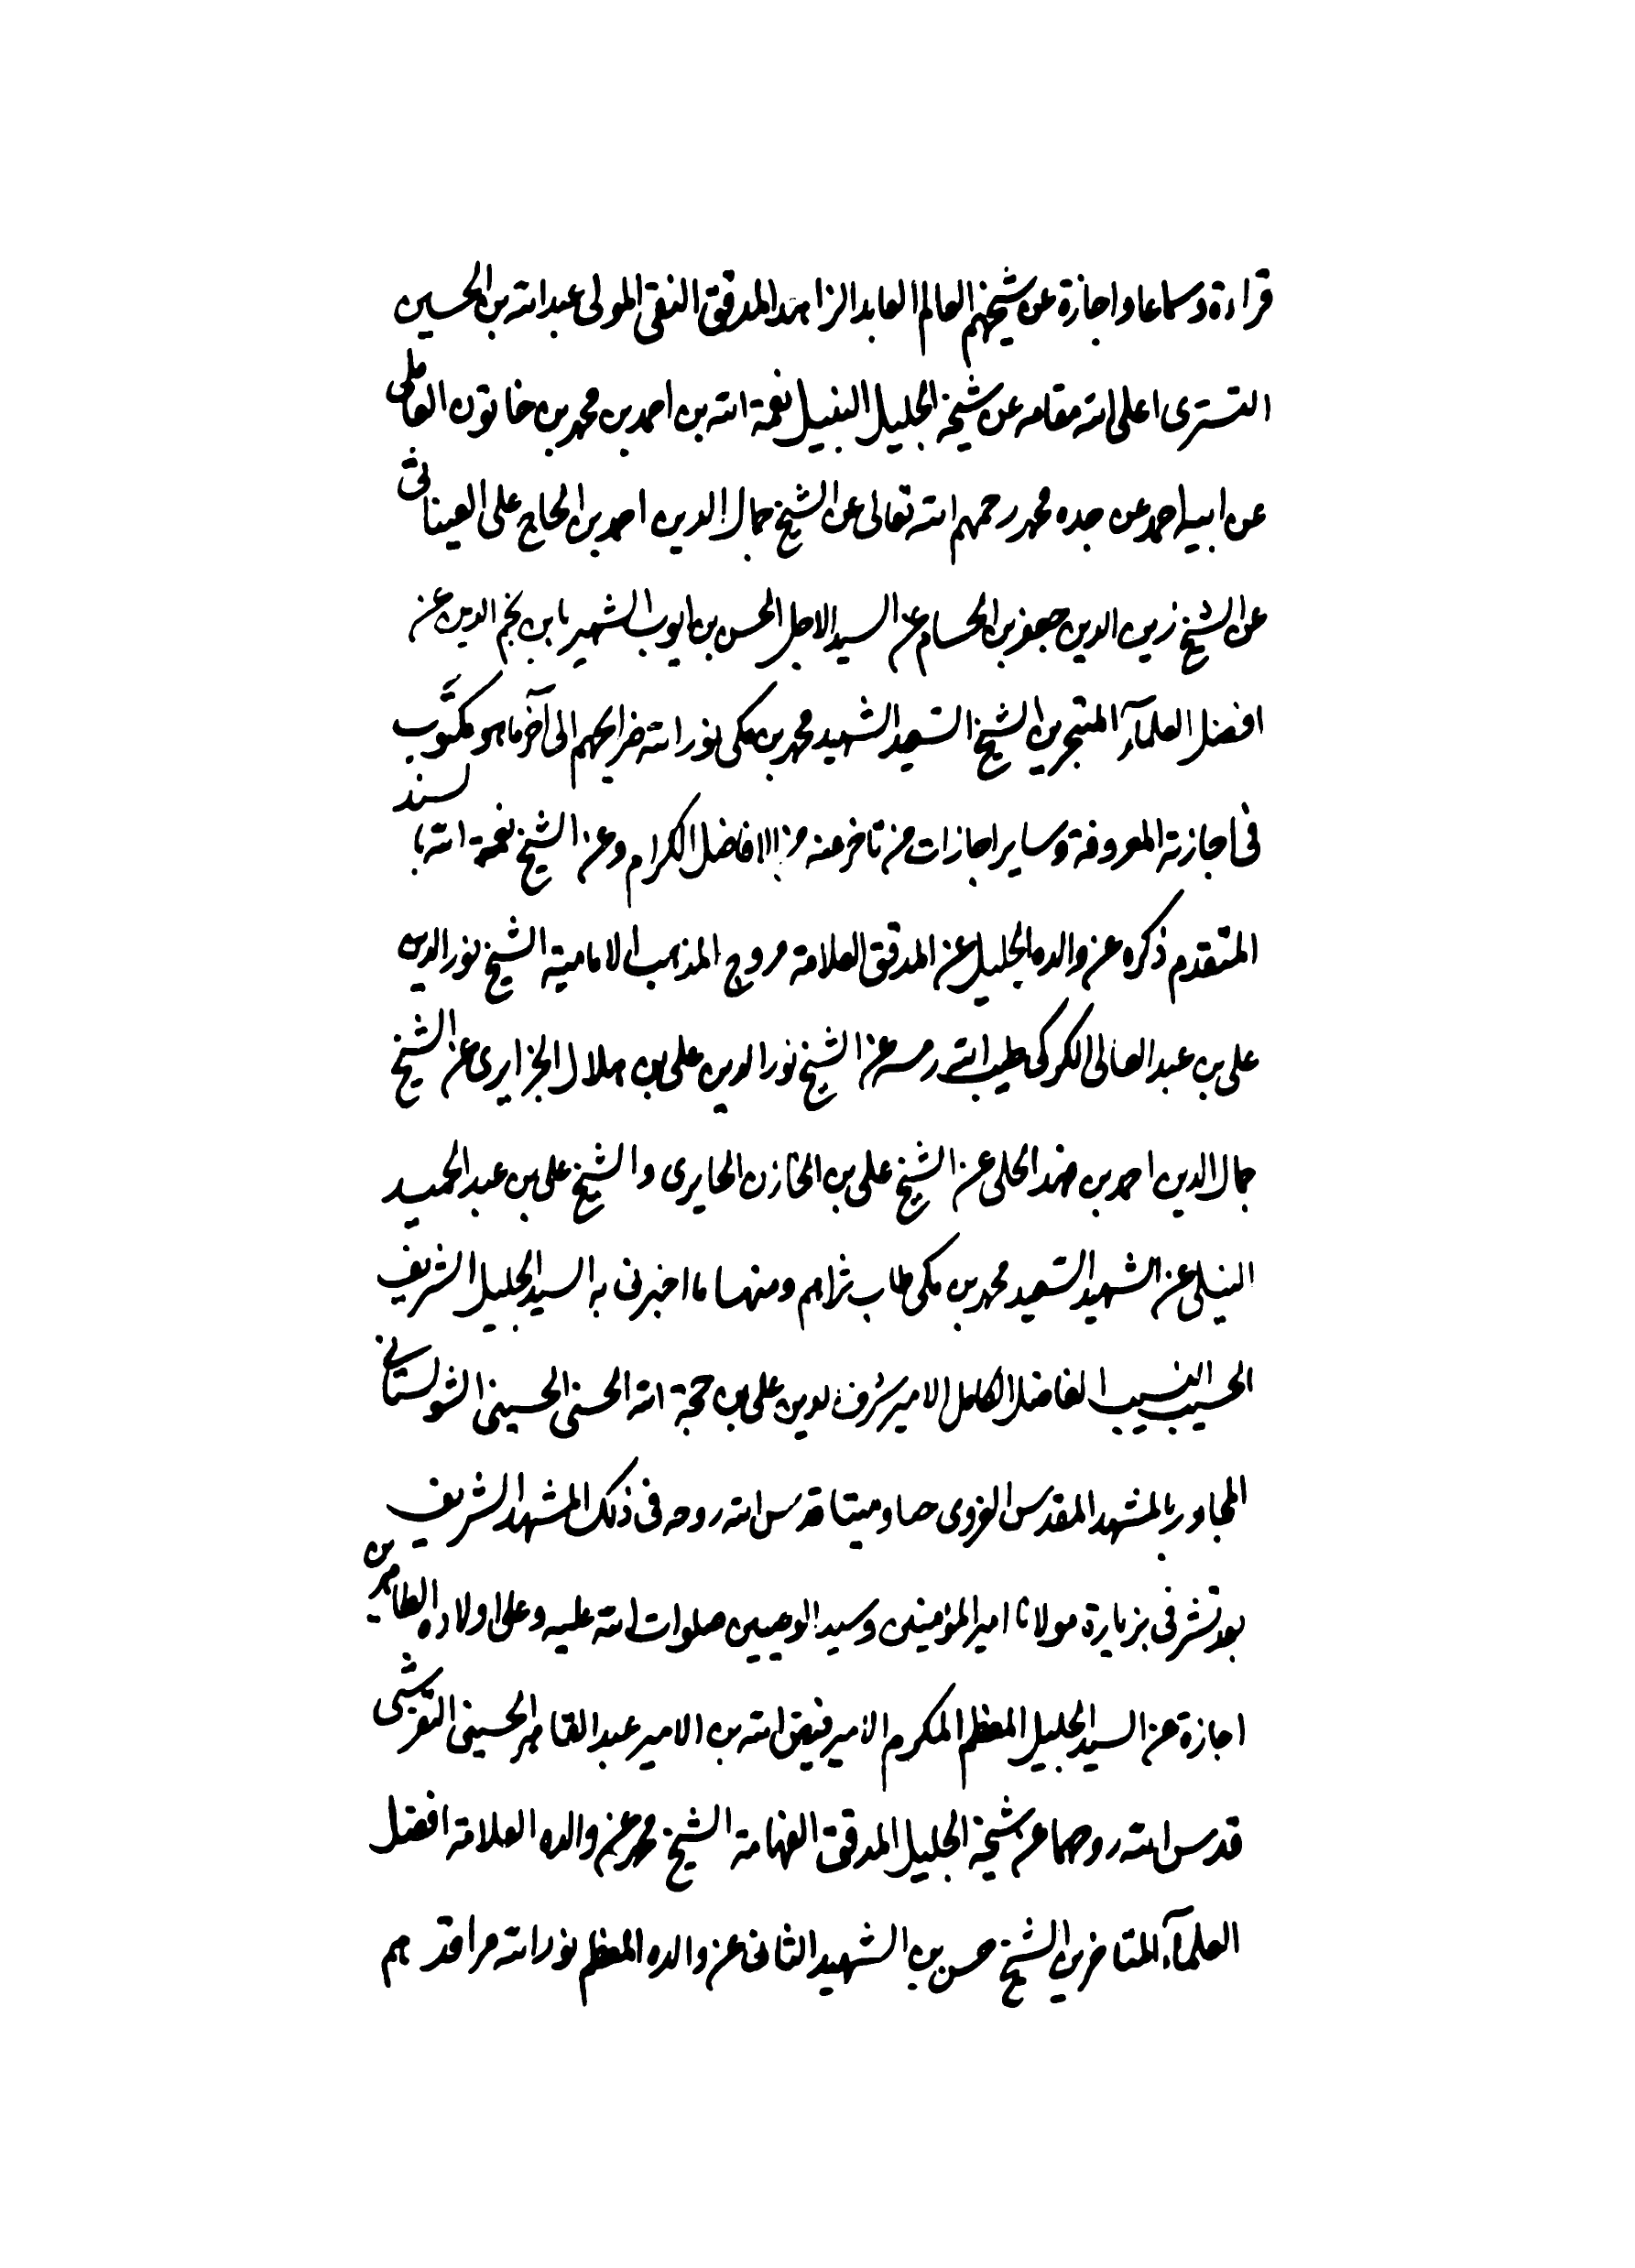 قراءة وسماعا واجازة عن شيخهم العالم العابد الزاهد المدقق النقى المولى عبد الله بن الحسين
التسترى اعلى الله مقامه عن شيخه الجليل النبيل نعمة الله بن احمد بن محمد بن خاتون العاملى
عن ابيه احمد عن جده محمد رحمهم الله تعالى عن الشيخ جمال الدين احمد بن الحاج على العيناثى
عن الشيخ زين الدين جعفر بن الحسام عن السيد الاجل الحسن بن ايوب الشهير بابن نجم الدين عن
افضل العلمآء المتبحرين الشيخ السعيد الشهيد محمد بن مكى نور الله ضرايحهم الى آخر ما هو مكتوب
فى اجازته المعروفة وساير اجازات من تاخر عنه من الافاضل الكرام وعن الشيخ نعمة الله بالسند
المتقدم ذكره عن والده الجليل عن المدقق العلامة مروج المذهب الامامية الشيخ نور الدين
على بن عبد العالى الكركى طيب الله رمسه عن الشيخ نور الدين على بن هلال الجزايرى عن الشيخ
جمال الدين احمد بن فهد الحلى عن الشيخ على بن الخازن الحايرى والشيخ على بن عبد الحميد
النيلى عن الشهيد السعيد محمد بن مكى طاب ثراهم ومنها ما اخبرنى به السيد الجليل الشريف
الحسيب النسيب الفاضل الكامل الامير شرف الدين على بن حجة الله الحسنى الحسينى الشولستانى
المجاور بالمشهد المقدس الغروى حيا وميتا قدس الله روحه فى ذلك المشهد الشريف
بعد تشرفى بزيارة مولانا امير المؤمنين وسيد الوصيين صلوات الله عليه وعلى اولاده الطاهرين
اجازة عن السيد الجليل المعظم المكرم الامير فيض الله بن الامير عبد القاهر الحسينى التفرشى
قدس الله روحهما عن شيخه الجليل المدقق الفهامة الشيخ محمد عن والده العلامة افضل
العلمآء المتاخرين الشيخ حسن بن الشهيد الثانى عن والده المعظم نور الله مراقدهم